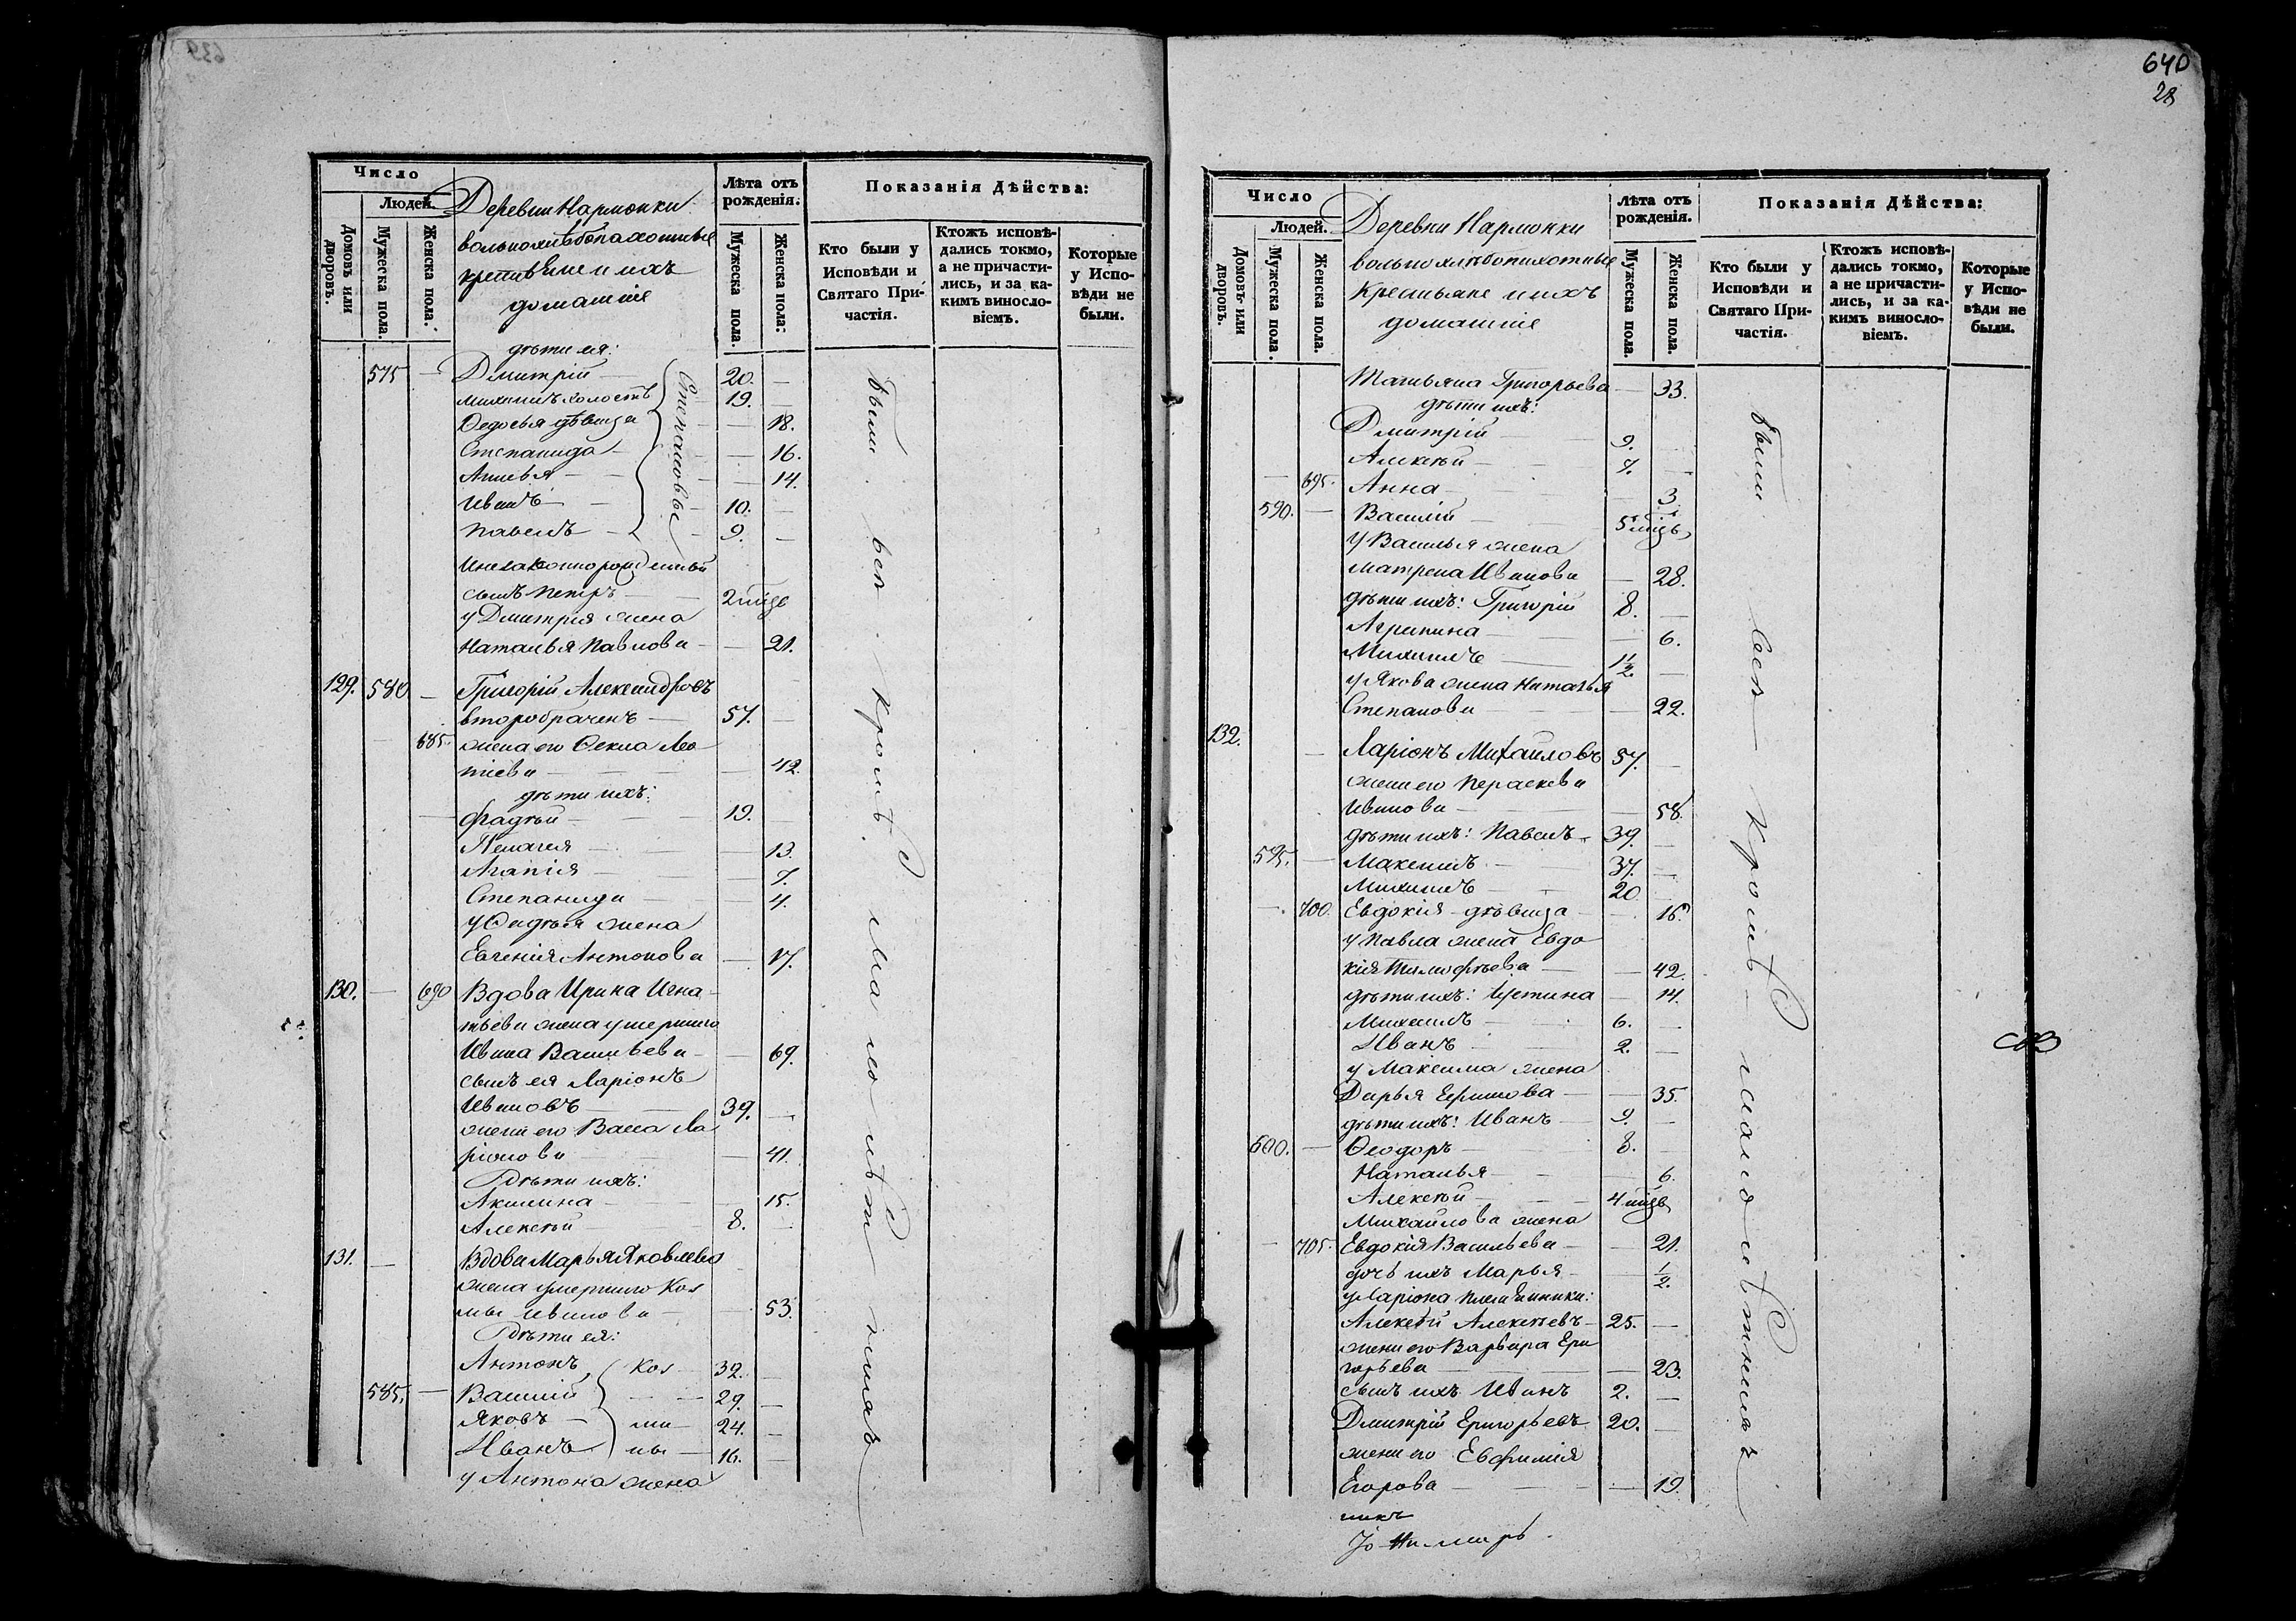 639
Число
Людей.
Домовъ или дворовъ.
Мужеска пола.
Женска пола.
Деревни Нармонки
вольнохлѣбопахотные
крестьяне и ихъ
домашніе
Лѣта отъ рожденія.
Мужеска пола.
Женска пола:
Показанія Дѣйства:
Кто были у Исповѣди и Святаго Причастія.
Ктожъ исповѣдались токмо, а не причастились, и за какимъ винословіемъ.
Которые у Исповѣди не были.
дѣти ея:
575 — Дмитрій — 20. —
Михаилъ холостъ — 19. —
Ѳедосья дѣвица — 18.
Степанида — 16.
Анисья — 14.
Иванъ — 10. —
Павелъ — 9. —
Степановы
незаконнорожденный
сынъ Петръ — 2 мѣсц
у Дмитрія жена
Наталья Павлова — 21.
129. 580 — Григорій Александровъ
второбраченъ — 57. —
685. жена его Ѳекла Ле
тіева — 42.
дѣти ихъ:
Фадѣй — 19.
Пелагея — 13.
Агапія — 7.
Степанида — 4.
у Фадѣя жена
Евгенія Антонова — 17.
130. — 690 Вдова Ирина Игна
тьева жена умершаго
Ивана Васильева — 69.
сынъ ея Ларіонъ
Ивановъ — 39. —
жена его Васса Ла
ріонова — 41.
дѣти ихъ:
Акилина — 15.
Алексѣй — 8. —
131. — Вдова Марья Яковлева
жена умершаго Коз
мы Иванова — 53.
дѣти ея:
Антонъ 32. —
585. — Василій 29. —
Яковъ — 24. —
Иванъ 16. —
Коз
мы
у Антона жена
были всѣ кромѣ малолѣтнихъ
640
28
Число
Людей.
Домовъ или дворовъ.
Мужеска пола.
Женска пола.
Деревни Нармонки
вольнохлѣбопахотные
Крестьяне и ихъ
домашніе
Лѣта отъ рожденія.
Мужеска пола.
Женска пола.
Показанія Дѣйства:
Кто были у Исповѣди и Святаго Причастія.
Ктожъ исповѣдались токмо, а не причастились, и за какимъ винословіемъ.
Которые у Исповѣди не были.
Татьяна Григорьева — 33.
дѣти ихъ:
Дмитрій — 9.
Алексѣй — 7. —
— 695. Анна — 3
590. — Василій — 5 мѣсцъ
у Василья жена
Матрена Иванова — 28.
дѣти ихъ: Григорій 8. —
Агрипина — 6.
Михаилъ — 1½ —
у Якова жена Наталья
Степанова — 22.
132. — Ларіонъ Михайловъ 57. —
жена его Пераскева
Иванова — 58.
дѣти ихъ: Павелъ — 39. —
595. — Максимъ — 37. —
Михаилъ — 20
— 700. Евдокія дѣвица — 16.
у Павла жена Евдо
кія Тимофѣева — 42.
дѣти ихъ: Устина — 14.
Михаилъ — 6. —
Иванъ — 2. —
у Максима жена
Дарья — 35.
дѣти ихъ: Иванъ — 9. —
600. — Ѳеодоръ — 8. —
Наталья — 6.
Алексѣй — 4 мѣсц
Михайлова жена
— 705. Евдокія Васильева — 21.
дочь ихъ Марья — ½
у Ларіона племянники:
Алексѣй Алексѣевъ — 25. —
жена его Варвара Гри
горьева — 23.
сынъ ихъ Иванъ 2. —
Дмитрій Григорьевъ 20. —
жена его Евфимія
Егорова — 19.
были всѣ кромѣ малолѣтнихъ